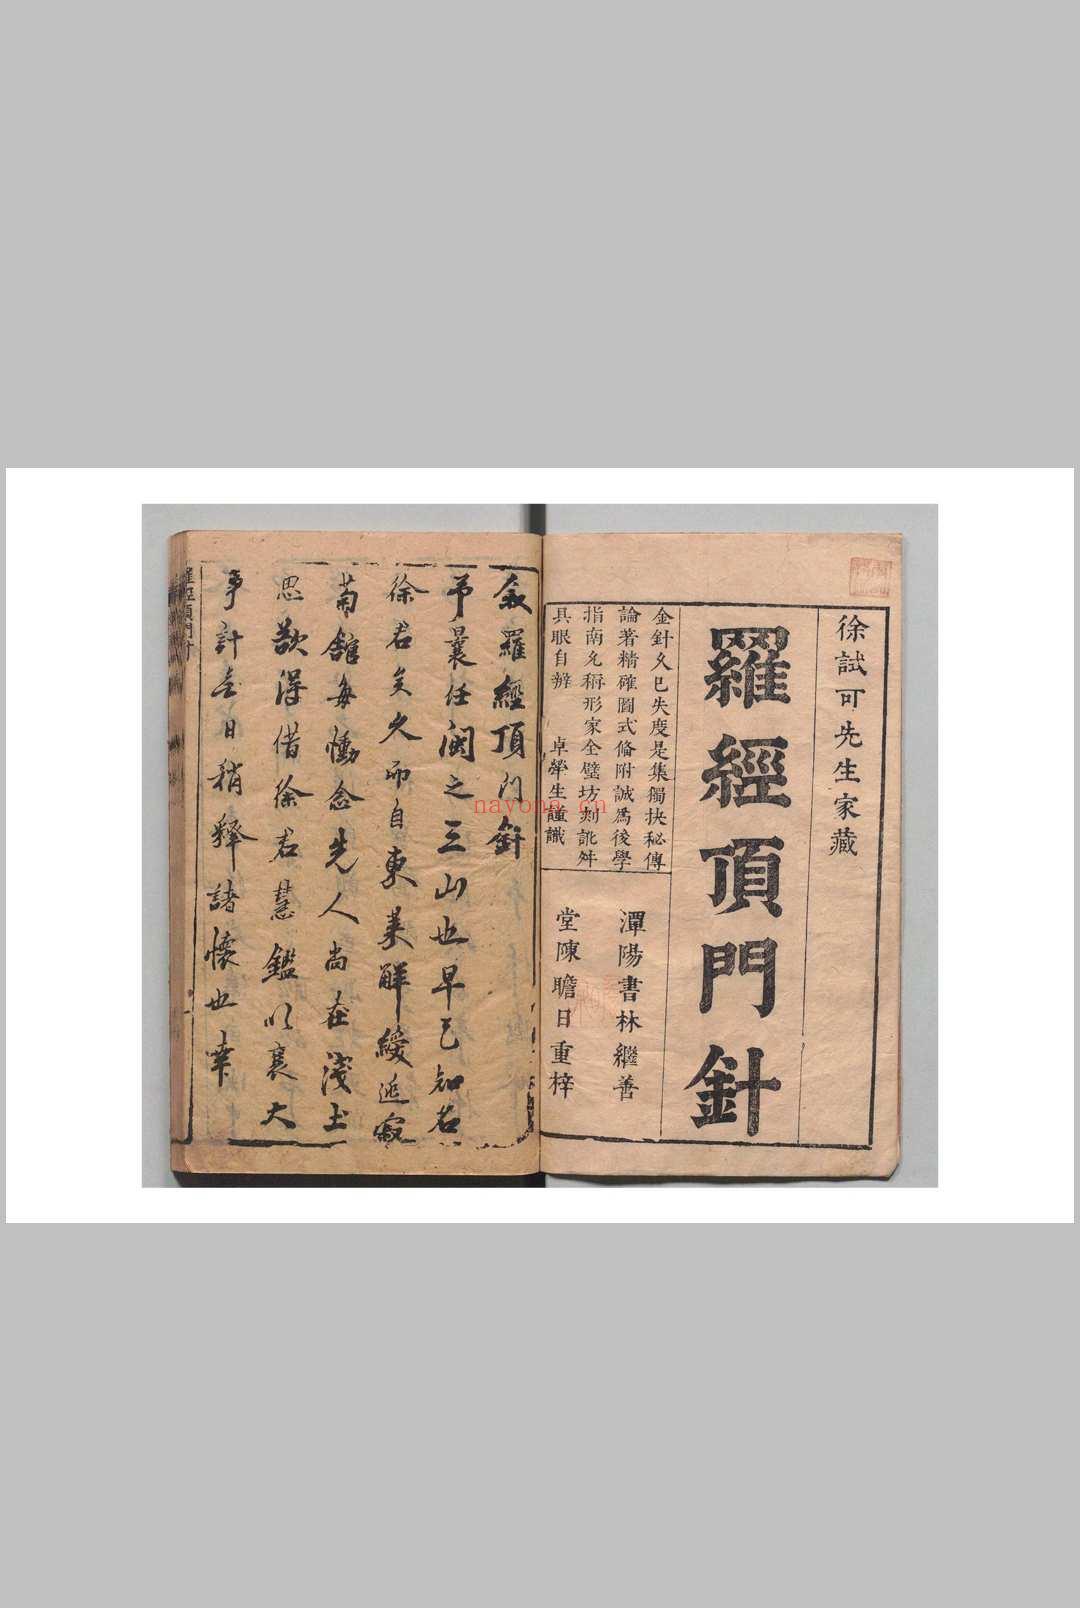 徐試可先生家藏
羅經頂門針
金針久已失度是集獨抉秘傳
論著精確圖式俻附誠爲後學
指南允稱形家全璧坊刻訛舛
具眼自辨 卓犖生謹識
潭陽書林繼善
堂陳瞻日重梓
叙羅經頂門針
予曩任閩之三山也早已知若
徐君矣久而自東萊解綬遁寂
菊館每慟念先人尚在淺土
思欲得借徐君慧鑑以襄大
事計无日稍釋諸懷也幸
羅經頂門針
nayona.cn